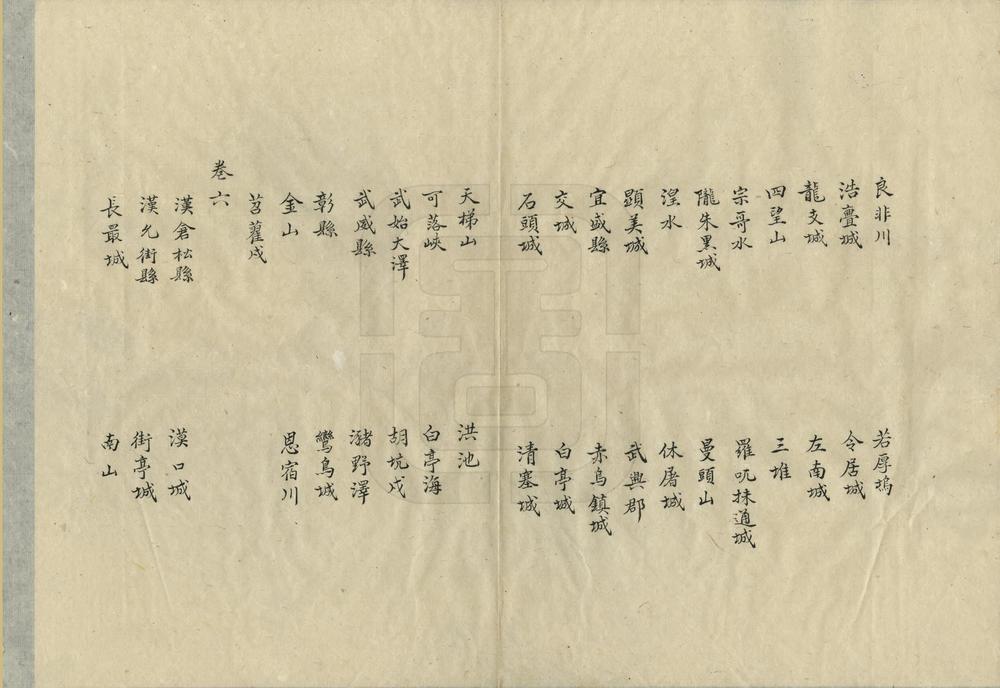 良非川 若厚塢
浩亹城 令居城
龍支城 左南城
四望山 三堆
宗哥水 羅吼抹逋城
隴朱黑城 曼頭山
湟水 休屠城
顕美城 武興郡
宜盛縣 赤烏鎮城
交城 白亭城
石頭城 清塞城
天梯山 洪池
可落峽 白亭海
武始大澤 胡坑戍
武威縣 瀦野澤
彰縣 鸞鳥城
金山 恩宿川
莒藿戍
卷六
漢倉松縣 漠口城
漢允街縣 街亭城
長最城 南山